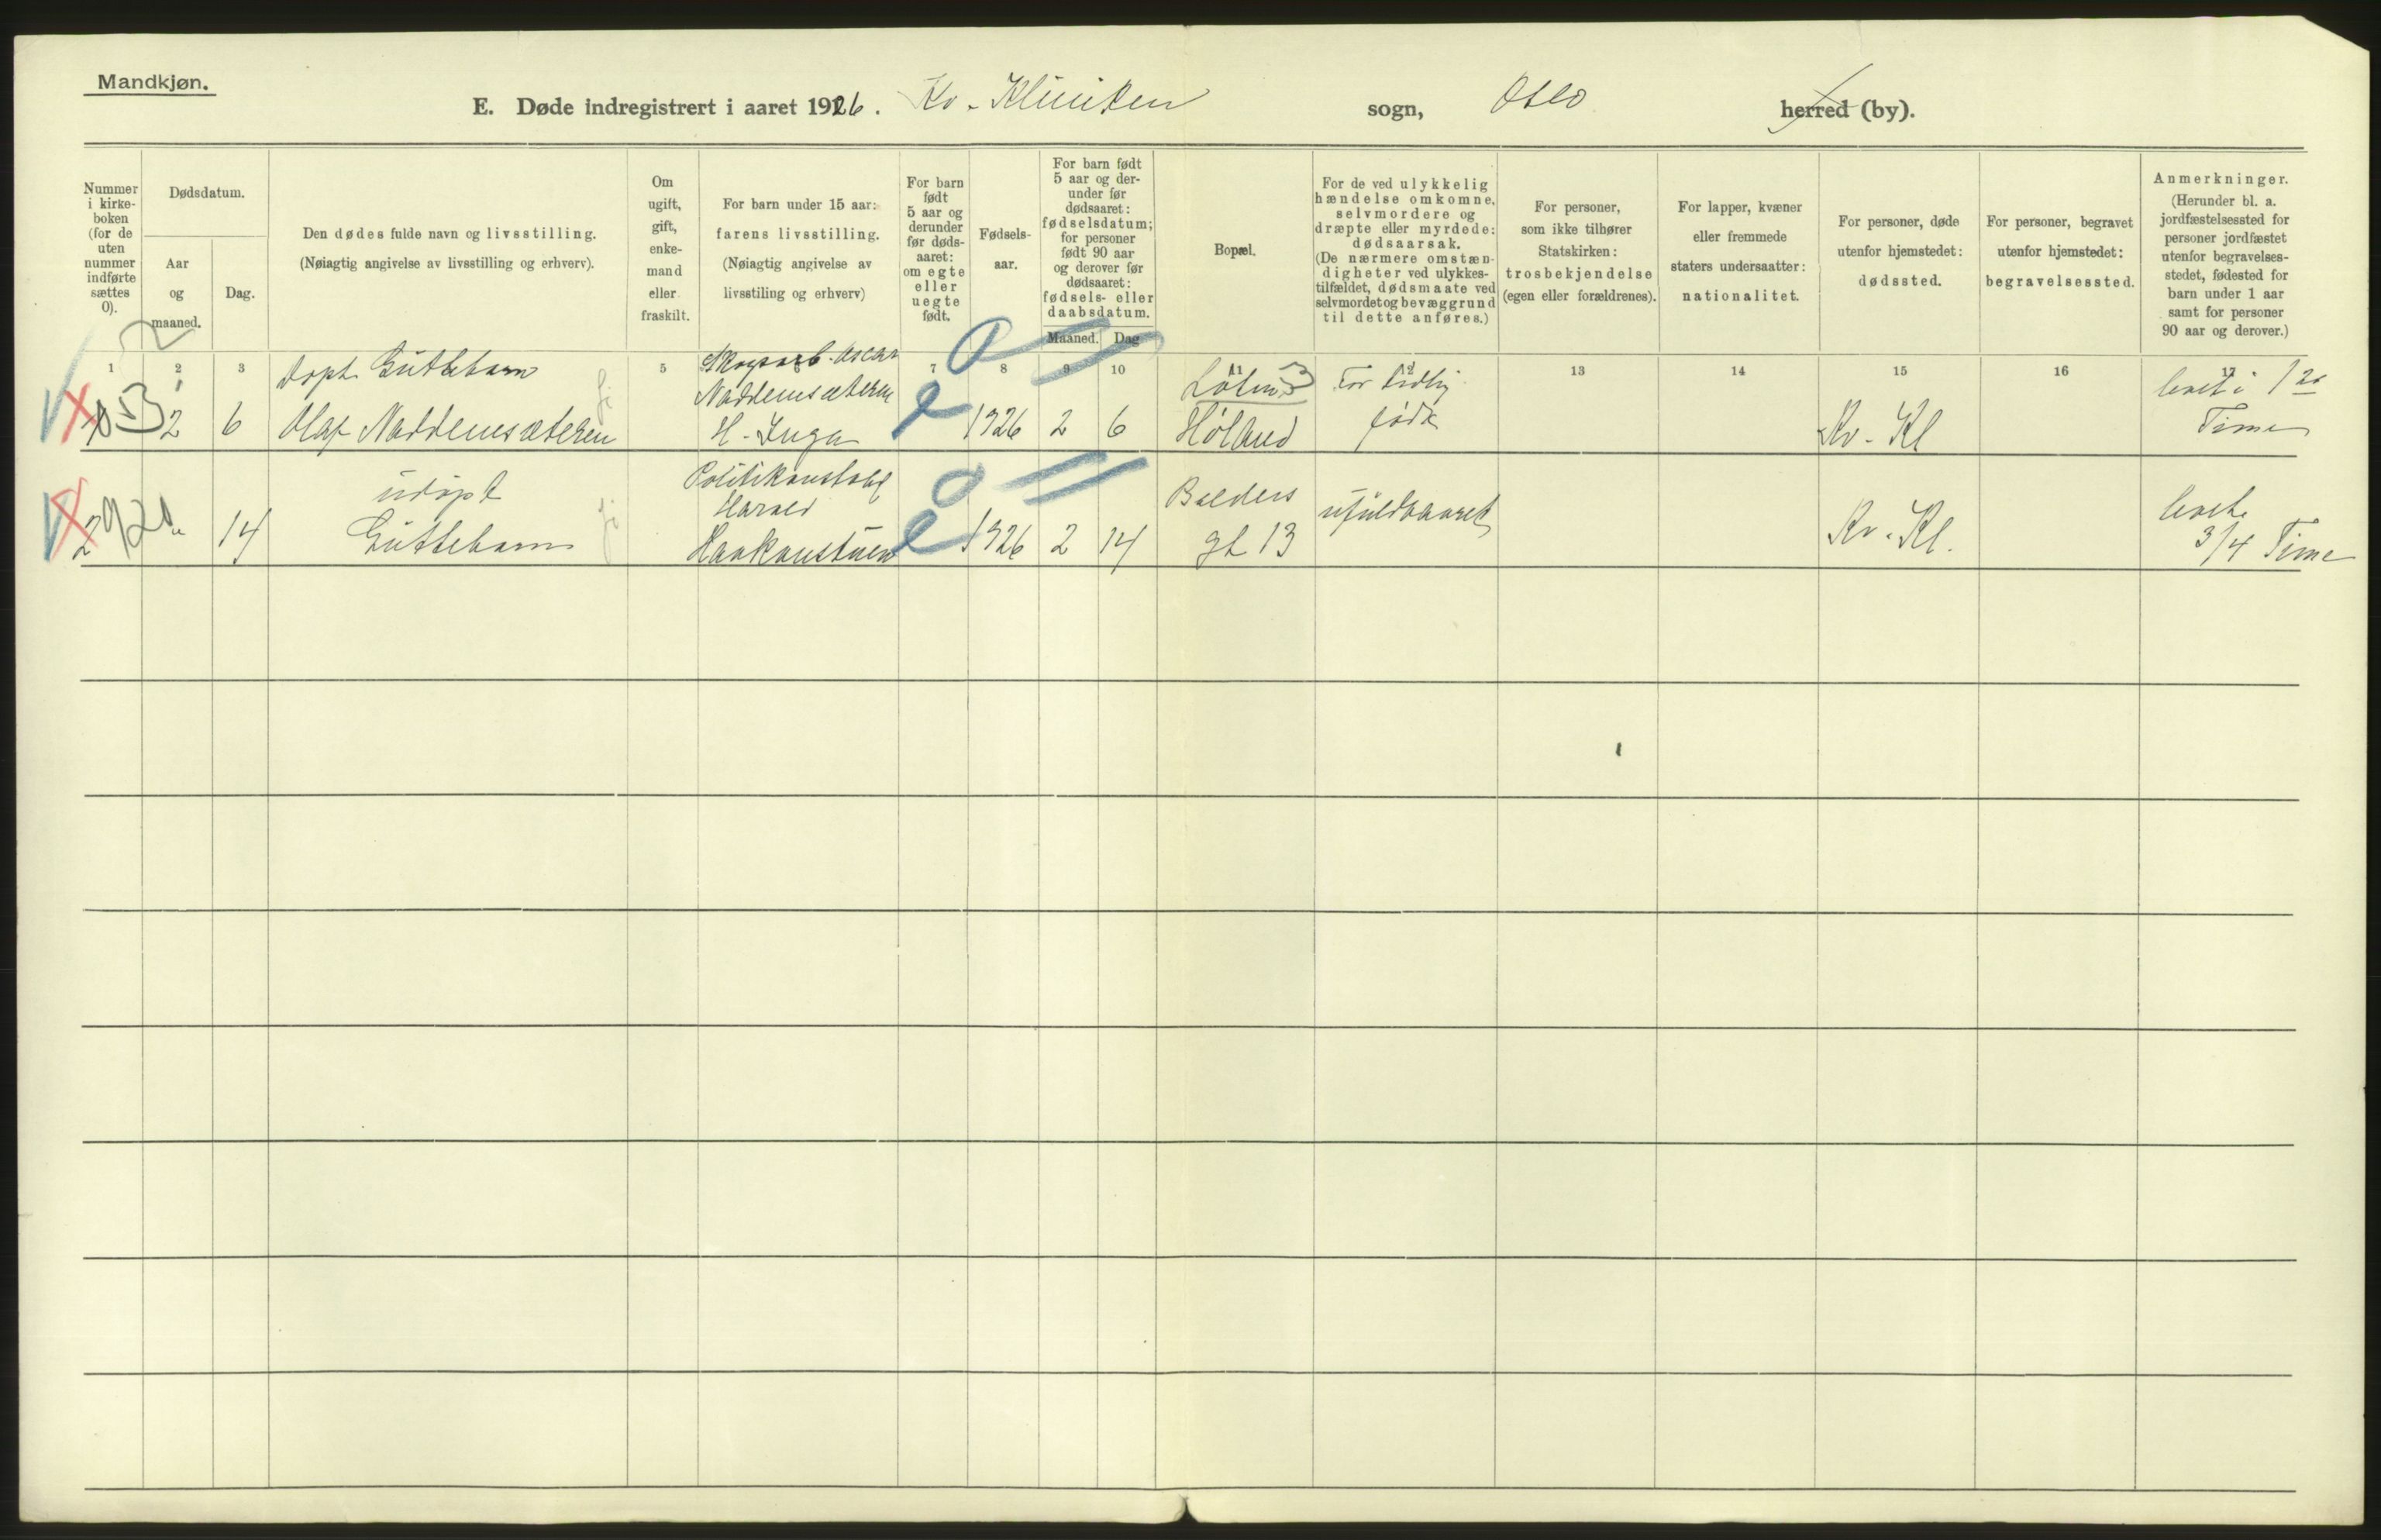 Mandkjøn.
E. Døde indregistrert i aaret 1926. Kv. Kliniken sogn, Oslo herred (by).
Nummer i kirke-boken (for de uten nummer indførte sættes 0).
Dødsdatum.
Aar og maaned.
Dag.
Den dødes fulde navn og livsstilling.
(Nøiagtig angivelse av livsstilling og erhverv).
Om ugift, gift, enke-mand eller fraskilt.
For barn under 15 aar:
farens livsstilling.
(Nøiagtig angivelse av
livsstiling og erhverv)
For barn født 5 aar og derunder før døds-aaret: om egte eller uegte født.
Fødsels-aar.
For barn født 5 aar og der-under før dødsaaret: fødselsdatum; for personer født 90 aar og derover før dødsaaret: fødsels- eller daabsdatum.
Maaned. Dag
Bopæl.
For de ved ulykkelig hændelse omkomne, selvmordere og dræpte eller myrdede: dødsaarsak. (De nærmere omstæn-digheter ved ulykkes-tilfældet, dødsmaate ved selvmordet og bevæggrund til dette anføres.)
For personer, som ikke tilhører Statskirken: trosbekjendelse (egen eller forældrenes).
For lapper, kvæner eller fremmede staters undersaatter: nationalitet.
For personer, døde utenfor hjemstedet: dødssted.
For personer, begravet utenfor hjemstedet: begravelsessted.
Anmerkninger.
(Herunder bl. a. jordfæstelsessted for personer jordfæstet utenfor begravelses-stedet, fødested for barn under 1 aar samt for personer 90 aar og derover.)
1 2 3 5 7 8 9 10 11 12 13 14 15 16 17
2 6
døpt Guttebarn
Olaf Naddemsæteren
Skogsarb. Oscar
Naddemsæteren
H. Inga
e 1926 2 6
Løten 3
Høland
For tidlig
født
Kv. Kl
levet i 1 20
Time
2 920 " 14
udøpt
Guttebarn
Politikonstabel
Harald
Haakonstuen
e 1926 2 14
Balders
gt 13
ufuldbaaret
Kv. Kl.
levet
3/4 Time